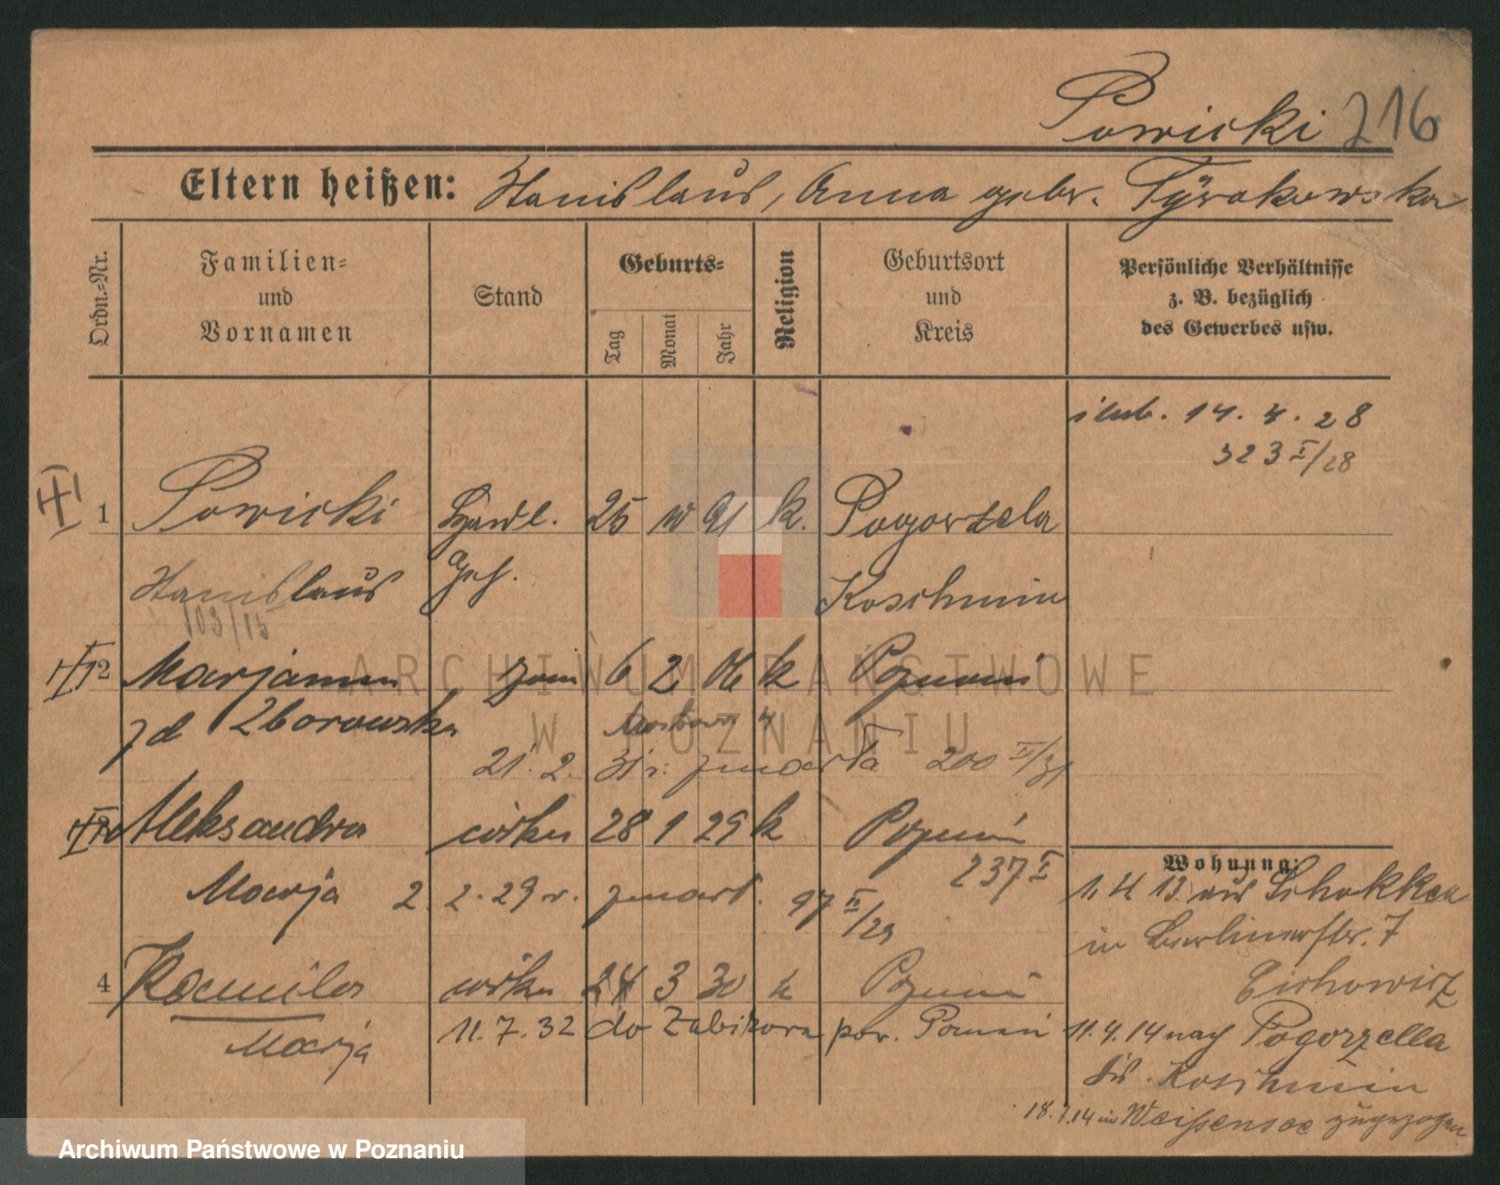 Powicki 216
Eltern heißen: Stanislaus, Anna gebr. Tyrakowska
Ordn.-Nr.
Familien- und Vornamen
Stand
Geburts-
Tag
Monat
Jahr
Religion
Geburtsort und Kreis
Persönliche Verhältnisse z. B. bezüglich des Gewerbes usw.
ślub. 14. 4. 28
323 I/28
1 Powicki Handl. 25 10 91 k. Pogorzela
Stanislaus Geh. Koschmin
103/15
2 Marjanna żona 6 2 06 k Poznań
zd Zborowska
21. 2. 31 r. zmarła 200 II/31
3 Aleksandra córka 28 1 29 k Poznań
237 I
Marja 2. 2. 29 r. zmarł. 97 II/29
4 Kamila córka 24 3 30 k Poznań
Marja
11. 7. 32 do Żabikowa pow. Poznań
Wohnung:
1. 4. 13. aus Schokken
in Berlinerstr. 7
Cichowicz
11. 4. 14 nach Pogorzella
Krs. Koschmin
18. 7. 14 in Weißensee zugezogen
ARCHIWUM PAŃSTWOWE
W POZNANIU
Archiwum Państwowe w Poznaniu